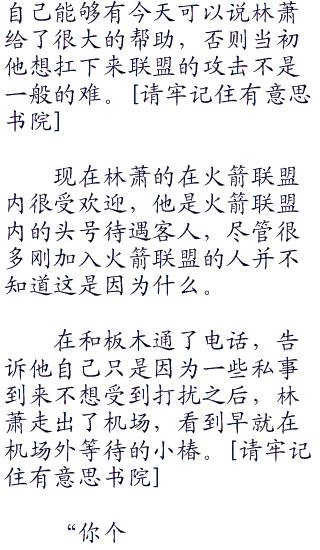 自己能够有今天可以说林萧
给了很大的帮助，否则当初
他想扛下来联盟的攻击不是
一般的难。[请牢记住有意思
书院]
现在林萧的在火箭联盟
内很受欢迎，他是火箭联盟
内的头号待遇客人，尽管很
多刚加入火箭联盟的人并不
知道这是因为什么。
在和板木通了电话，告
诉他自己只是因为一些私事
到来不想受到打扰之后，林
萧走出了机场，看到早就在
机场外等待的小椿。[请牢记
住有意思书院]
“你个